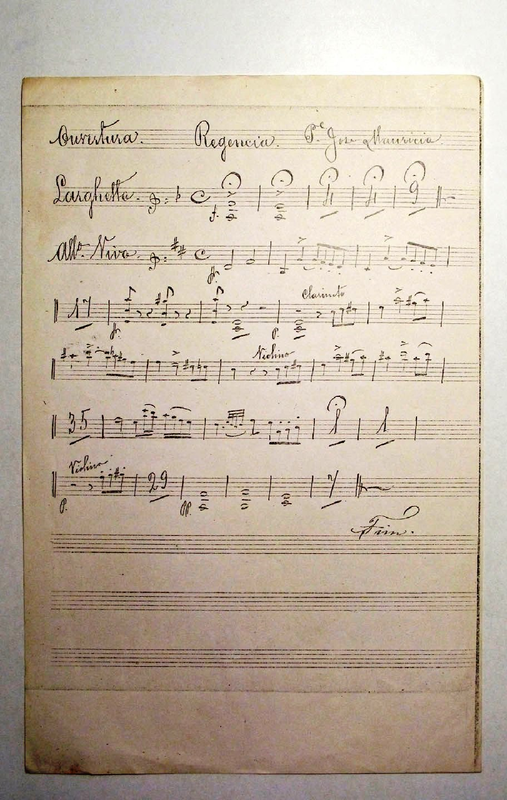 Ouvertura. Regencia. Pe. José Mauricio
Larghetto. f. 4 4 9
Allo. Vivo. ff.
17 f. p. Clarineto
Violino
35 1 1
Violino p. 29 ff. 7
Fim.